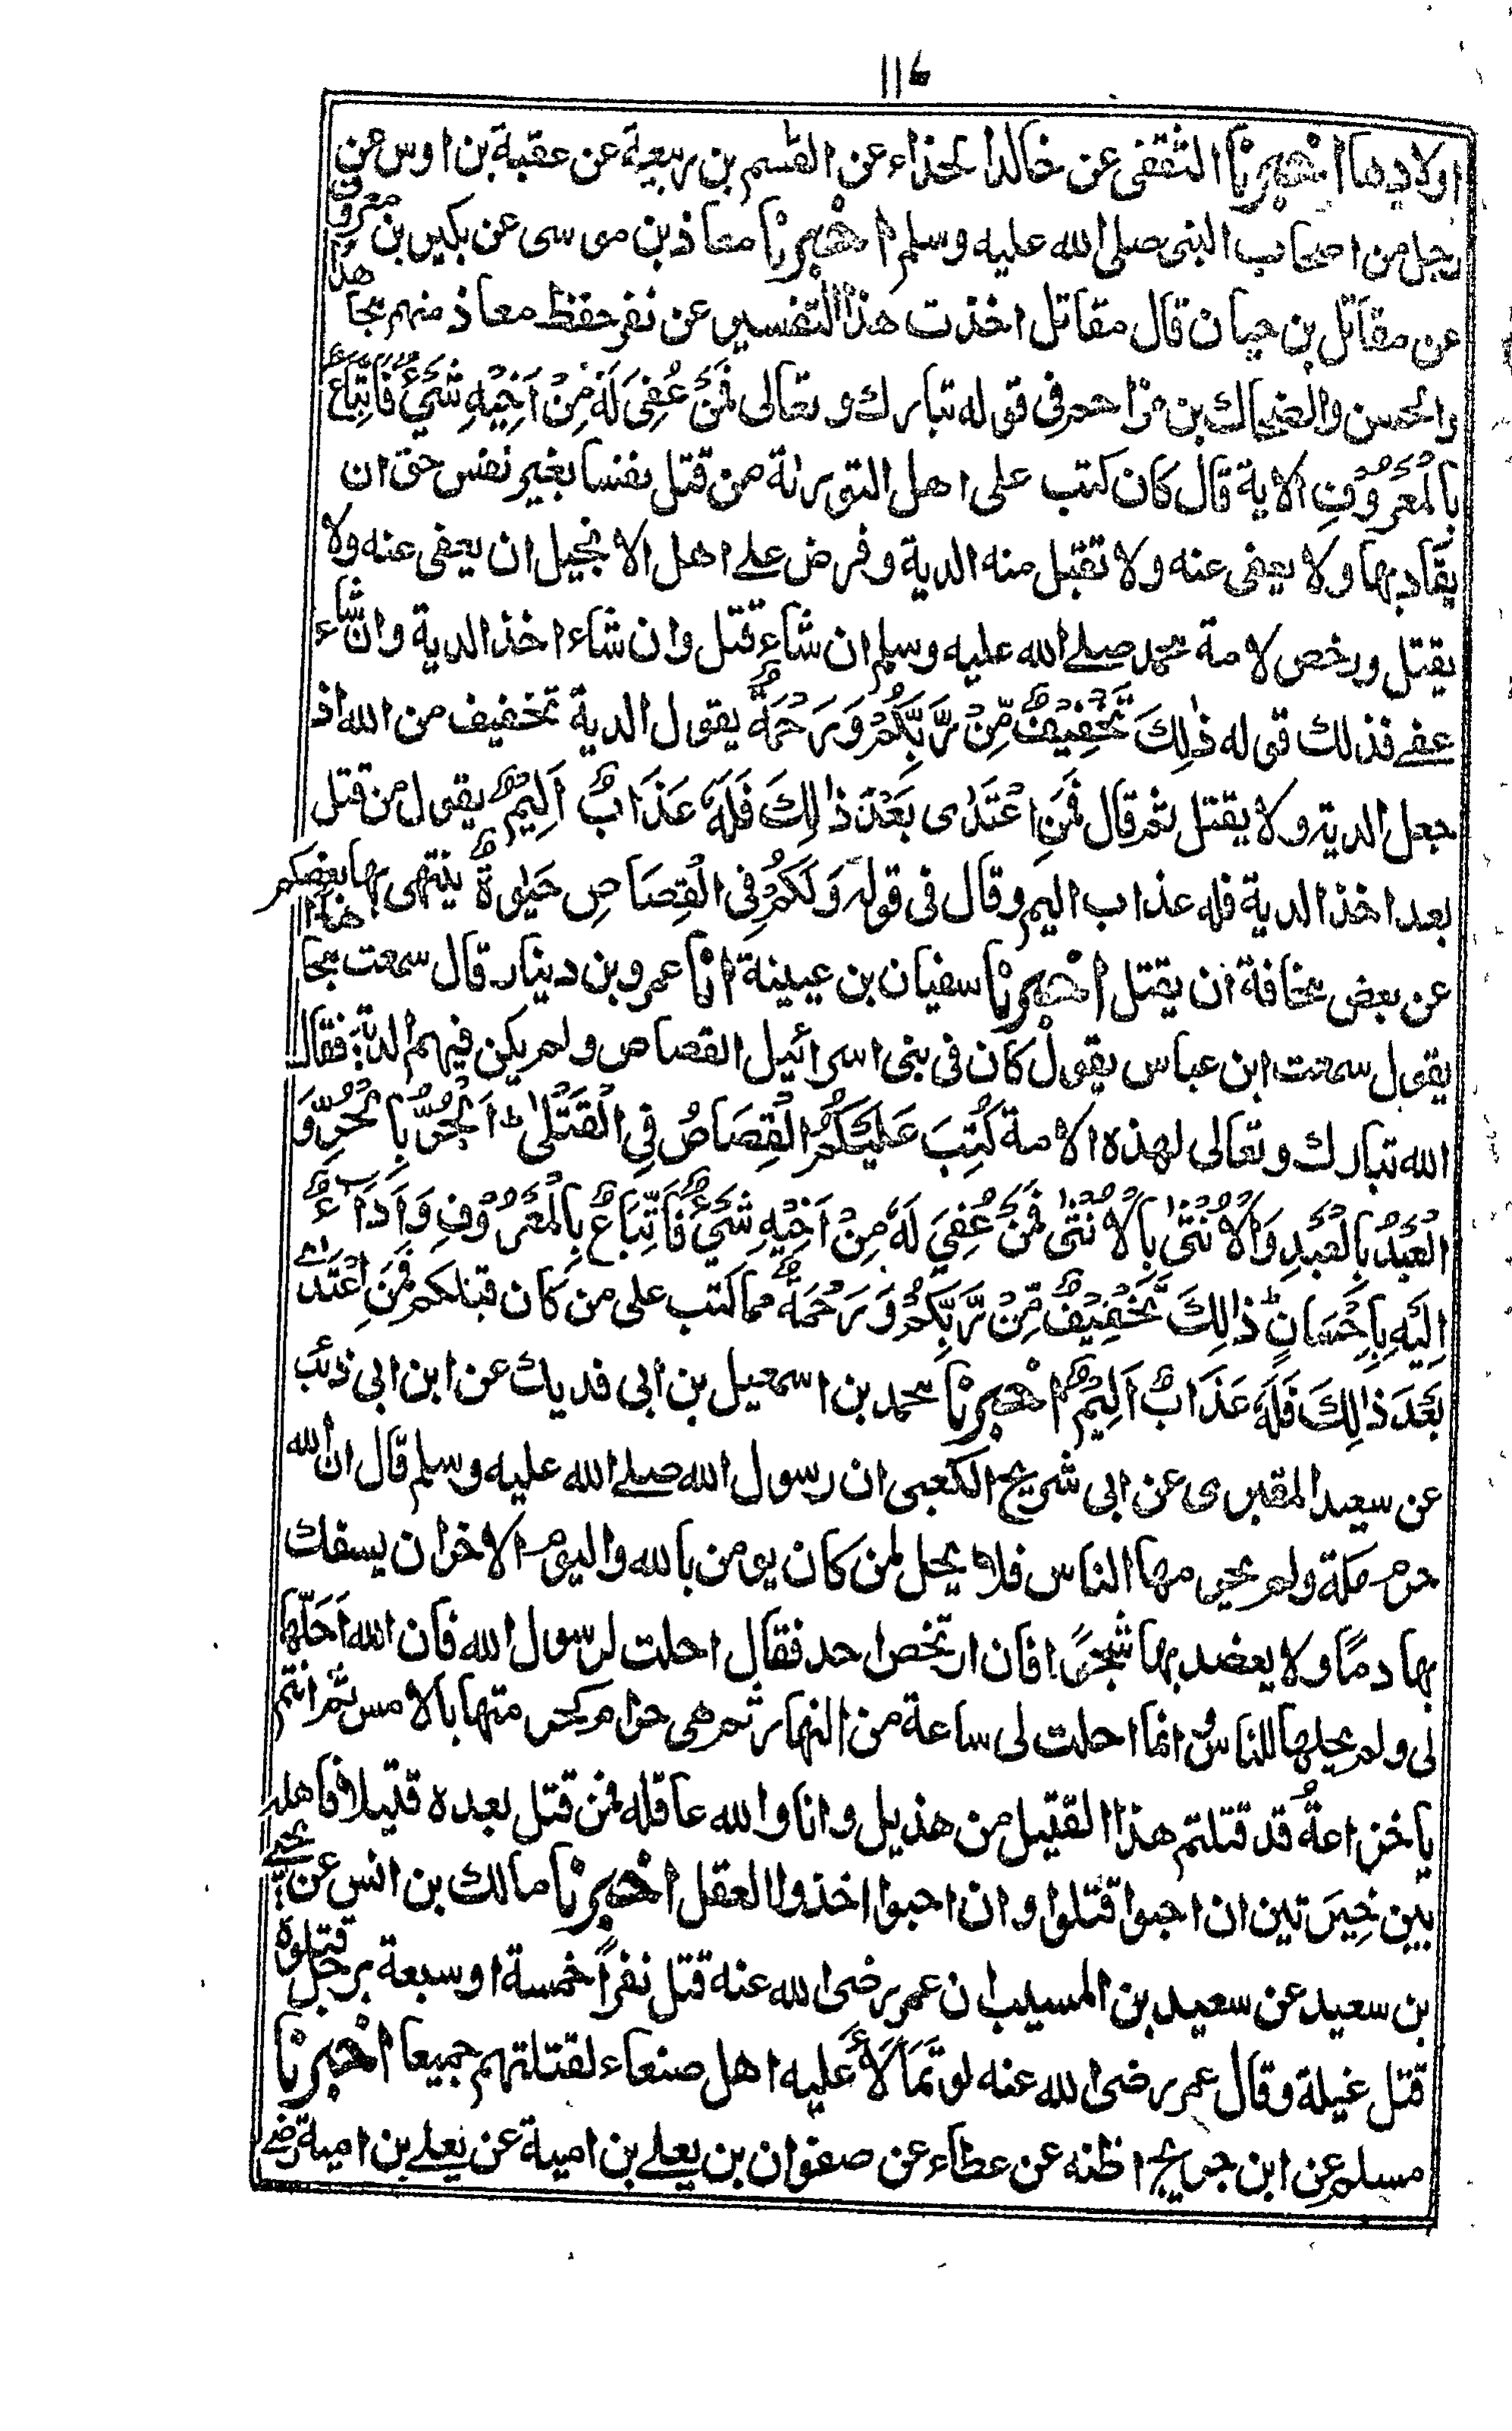 ١١٦
اولادها اخبرنا الثقفى عن خالد الحذاء عن القسم بن ربيعة عن عقبة بن اوس عن
رجل من اصحاب النبى صلى الله عليه وسلم اخبرنا معاذ بن موسى عن بكير بن معروف
عن مقاتل بن حيان قال مقاتل اخذت هذا التفسير عن نفر حفظ معاذ منهم مجاهدا
والحسن والضحاك بن مزاحم فى قوله تبارك وتعالى فَمَنْ عُفِىَ لَهٗ مِنْ اَخِيْهِ شَيْءٌ فَاتِّبَاعٌ
بِالْمَعْرُوْفِ الاية قال كان كتب على اهل التوراة من قتل نفسا بغير نفس حق ان
يقاد بها ولا يعفى عنه ولا تقبل منه الدية وفرض على اهل الانجيل ان يعفى عنه ولا
يقتل ورخص لامة محمد صلى الله عليه وسلم ان شاء قتل وان شاء اخذ الدية وان شاء
عفى فذلك قوله ذٰلِكَ تَخْفِيْفٌ مِّنْ رَّبِّكُمْ وَرَحْمَةٌ يقول الدية تخفيف من الله اذ
جعل الدية ولا يقتل ثم قال فَمَنِ اعْتَدٰى بَعْدَ ذٰلِكَ فَلَهٗ عَذَابٌ اَلِيْمٌ يقول من قتل
بعد اخذ الدية فله عذاب اليم وقال فى قوله وَلَكُمْ فِى الْقِصَاصِ حَيٰوةٌ ينتهى بها بعضكم
عن بعض مخافة ان يقتل اخبرنا سفيان بن عيينة انا عمرو بن دينار قال سمعت مجاهدا
يقول سمعت ابن عباس يقول كان فى بنى اسرائيل القصاص ولم يكن فيهم الدية فقال
الله تبارك وتعالى لهذه الامة كُتِبَ عَلَيْكُمُ الْقِصَاصُ فِى الْقَتْلٰى ؕ اَلْحُرُّ بِالْحُرِّ وَ
الْعَبْدُ بِالْعَبْدِ وَالْاُنْثٰى بِالْاُنْثٰى فَمَنْ عُفِيَ لَهٗ مِنْ اَخِيْهِ شَيْءٌ فَاتِّبَاعٌ بِالْمَعْرُوْفِ وَاَدَاءٌ
اِلَيْهِ بِاِحْسَانٍ ؕ ذٰلِكَ تَخْفِيْفٌ مِّنْ رَّبِّكُمْ وَرَحْمَةٌ مما كتب على من كان قبلكم فَمَنِ اعْتَدٰے
بَعْدَ ذٰلِكَ فَلَهٗ عَذَابٌ اَلِيْمٌ اخبرنا محمد بن اسمعيل بن ابى فديك عن ابن ابى ذئب
عن سعيد المقبرى عن ابى شريح الكعبى ان رسول الله صلى الله عليه وسلم قال ان الله
حرم مكة ولم يحرمها الناس فلا يحل لمن كان يومن بالله واليوم الاخر ان يسفك
بها دمًا ولا يعضد بها شجرًا فان ارتخص احد فقال احلت لرسول الله فان الله اَحَلَّها
لى ولم يحلها للناس انما احلت لى ساعة من النهار ثم هى حرام كحرمتها بالامس ثم انتم
يا خزاعةُ قد قتلتم هذا القتيل من هذيل وانا والله عاقله فمن قتل بعده قتيلا فاهله
بين خِيَرَتين ان احبوا قتلوا وان احبوا اخذوا العقل اخبرنا مالك بن انس عن يحيى
بن سعيد عن سعيد بن المسيب ان عمر رضى الله عنه قتل نفرًا خمسة او سبعة برجل قتلوه
قتل غيلة وقال عمر رضى الله عنه لو تَمَالَاَ عليه اهل صنعاء لقتلتهم جميعا اخبرنا
مسلم عن ابن جريج اظنه عن عطاء عن صفوان بن يعلى بن امية عن يعلى بن امية رضے